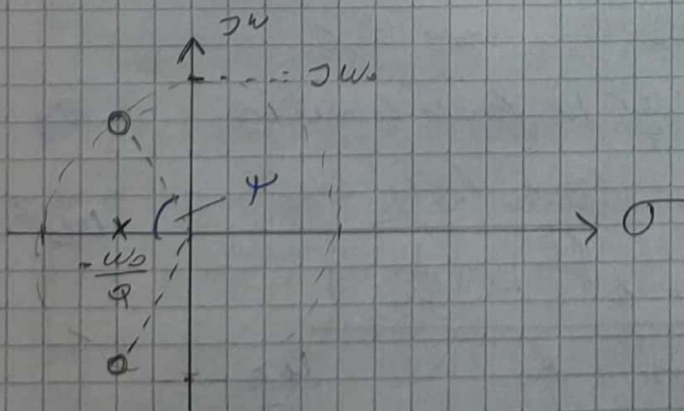 jω
jω₀
ψ
σ
-ω₀/Q